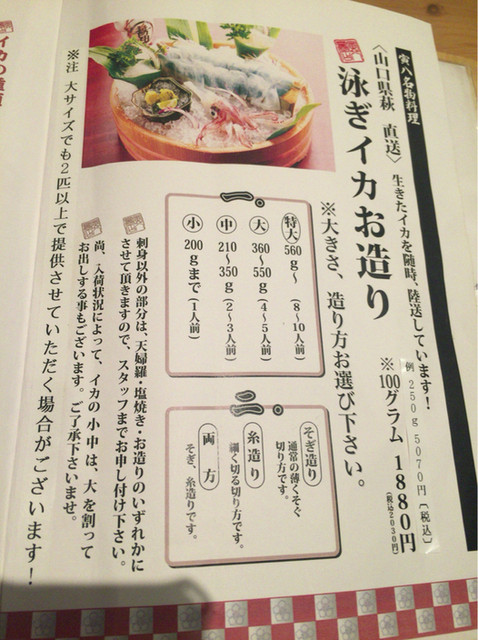 寅八名物料理
生きたイカを随時、陸送しています!
〈山口県萩 直送〉
泳ぎイカお造り
例 250g 5070円〔税込〕
※100グラム 1880円
(税込2030円)
※大きさ、造り方お選び下さい。
一.
特大 560g〜 (8〜10人前)
大 360〜550g (4〜5人前)
中 210〜350g (2〜3人前)
小 200gまで (1人前)
二.
そぎ造り
通常の薄くそぐ
切り方です。
糸造り
細く切る切り方です。
両方
そぎ、糸造りです。
刺身以外の部分は、天婦羅・塩焼き・お造りのいずれかに
させて頂きますので、スタッフまでお申し付け下さい。
尚、入荷状況によって、イカの小中は、大を割って
お出しする事もございます。ご了承下さいませ。
※注 大サイズでも2匹以上で提供させていただく場合がございます!